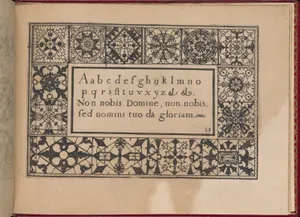 Aabcdefghijklmno
pqrsſtuvxyz&.&.
Non nobis Domine, non nobis,
ſed nomini tuo da gloriam.